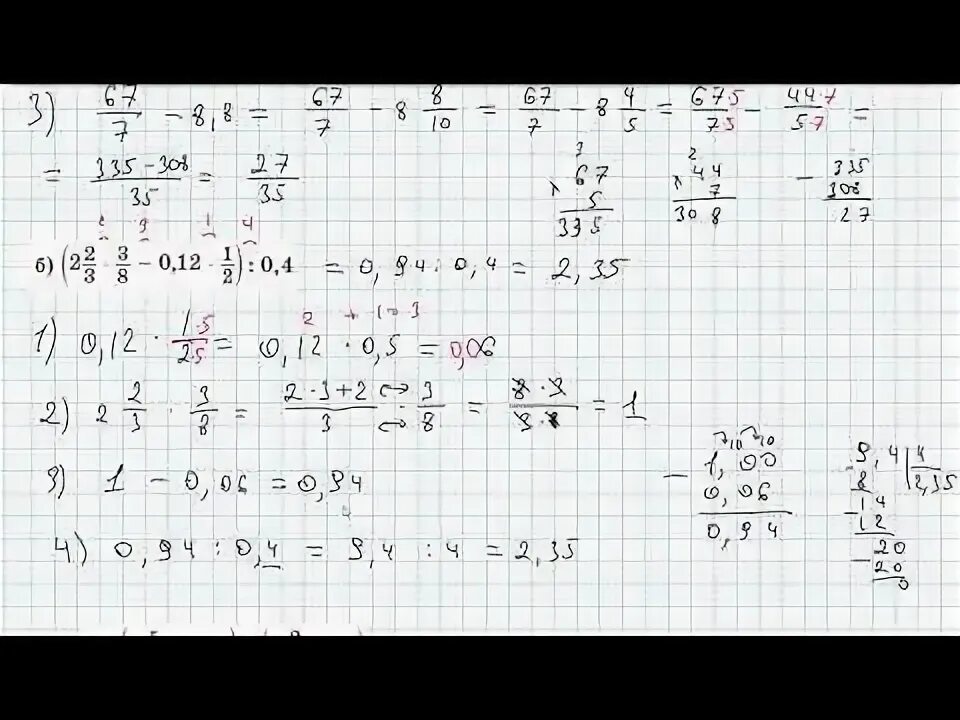 3) 67/7 - 8,8 = 67/7 - 8 8/10 = 67/7 - 8 4/5 = 67·5/7·5 - 44·7/5·7 =
= 335-308/35 = 27/35
3
67
× 5
335
2
44
× 7
308
- 335
308
27
2 3 1 4
б) (2 2/3 · 3/8 - 0,12 · 1/2) : 0,4 = 0,94 : 0,4 = 2,35
2 + 1 = 3
1) 0,12 · 1·5/2·5 = 0,12 · 0,5 = 0,06
2) 2 2/3 · 3/8 = 2·3+2/3 · 3/8 = 8·3/3·8 = 1
3) 1 - 0,06 = 0,94
10 10
- 1,00
0,06
0,94
4) 0,94 : 0,4 = 9,4 : 4 = 2,35
9,4 | 4
8 2,35
- 14
12
- 20
20
0